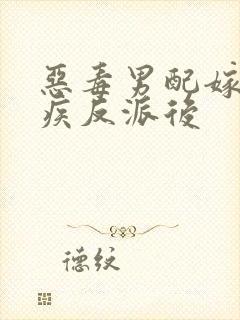 惡毒男配嫁
疾反派後
德紋